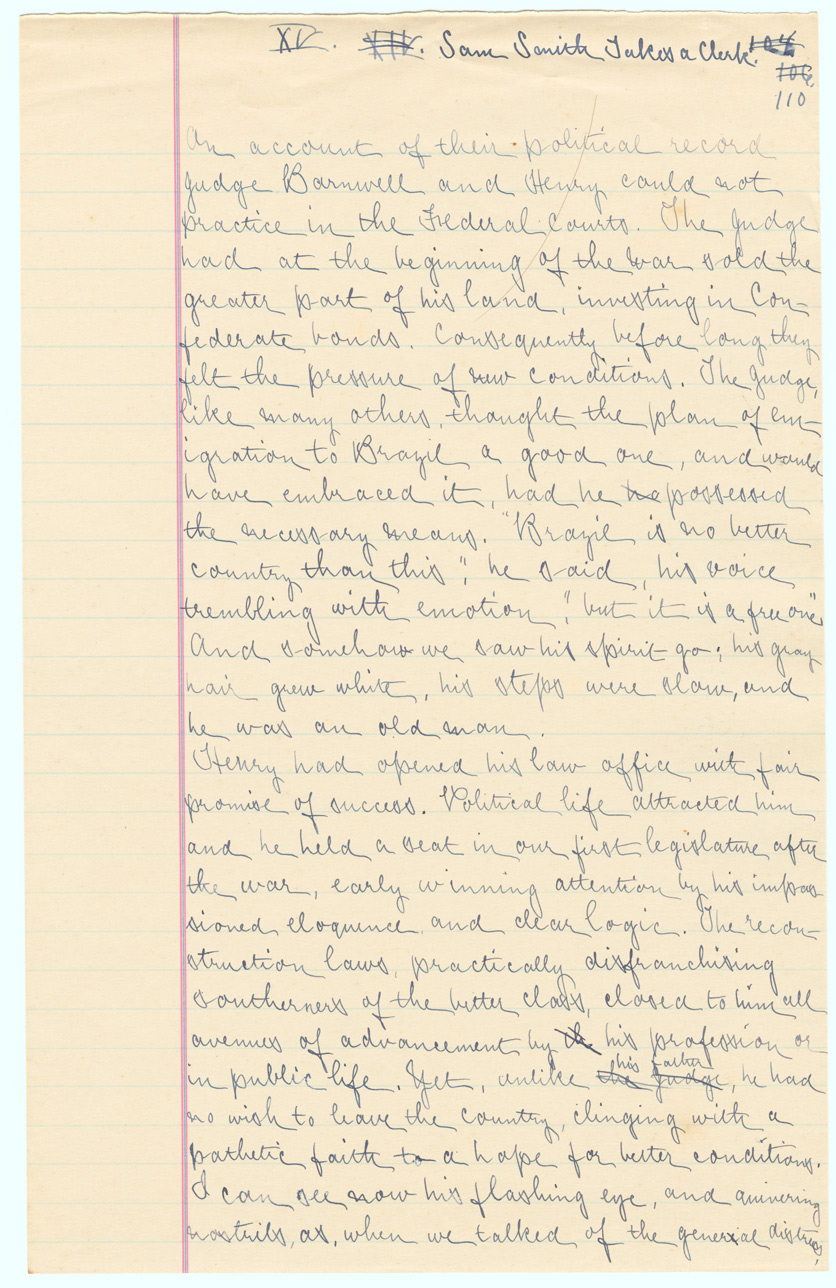 XV. XIV. Sam Smith Takes a Clerk. 104
106
110
On account of their political record
Judge Barnwell and Henry could not
practice in the Federal Courts. The Judge
had at the beginning of the war sold the
greater part of his land, investing in Con-
federate bonds. Consequently before long they
felt the pressure of new conditions. The Judge,
like many others, thought the plan of em-
igration to Brazil a good one, and would
have embraced it, had he he possessed
the necessary means. "Brazil is no better
country than this", he said, his voice
trembling with emotion, "but it is a free one".
And somehow we saw his spirit go; his gray
hair grew white, his steps were slow, and
he was an old man.
Henry had opened his law office with fair
promise of success. Political life attracted him
and he held a seat in our first legislature after
the war, early winning attention by his impas
sioned eloquence and clear logic. The recon-
struction laws, practically disfranchising
southerners of the better class, closed to him all
avenues of advancement by the his profession or
in public life. Yet, unlike the Judge his father, he had
no wish to leave the country, clinging with a
pathetic faith to a hope for better conditions.
I can see now his flashing eye, and quivering
nostrils, as, when we talked of the general distress,